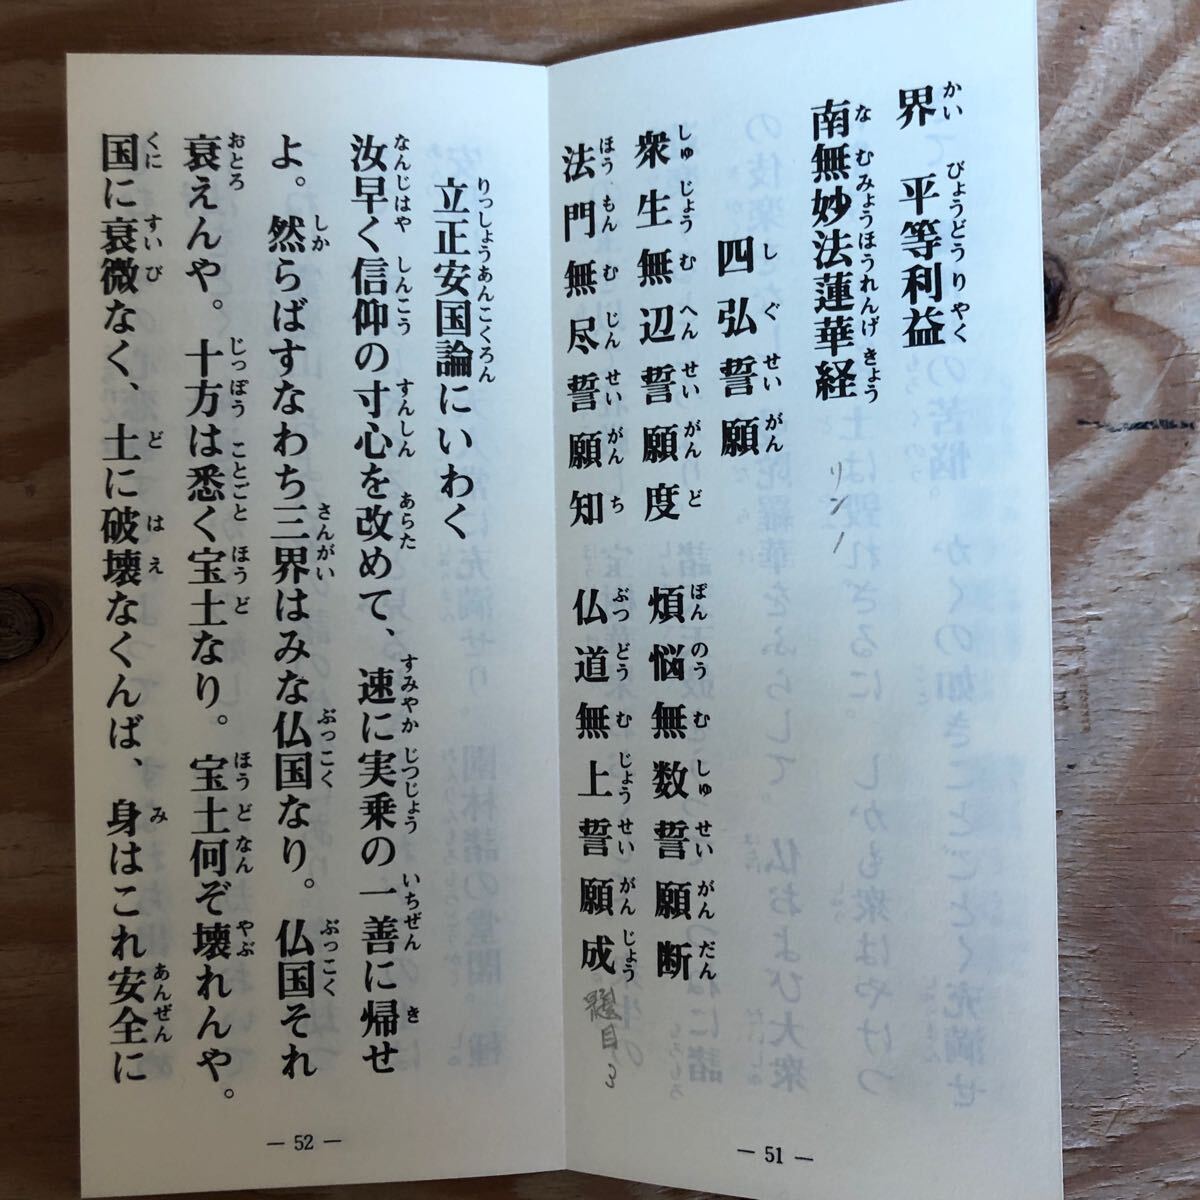 界　平等利益
南無妙法蓮華経
リン1
四弘誓願
衆生無辺誓願度　煩悩無数誓願断
法門無尽誓願知　仏道無上誓願成
題目3
― 51 ―
立正安国論にいわく
汝早く信仰の寸心を改めて、速に実乗の一善に帰せ
よ。然らばすなわち三界はみな仏国なり。仏国それ
衰えんや。十方は悉く宝土なり。宝土何ぞ壊れんや。
国に衰微なく、土に破壊なくんば、身はこれ安全に
― 52 ―